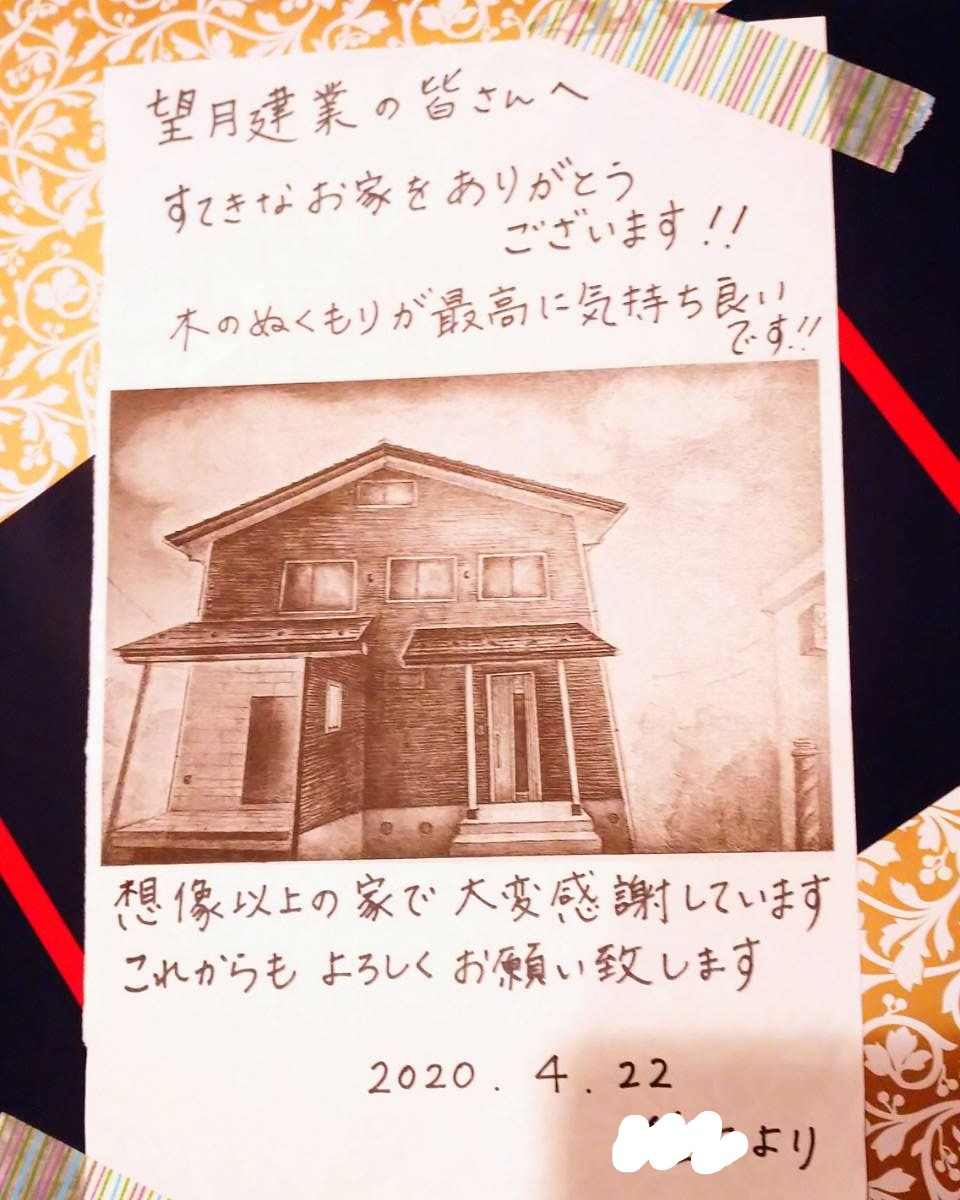 望月建業の皆さんへ
すてきなお家をありがとう
ございます!!
木のぬくもりが最高に気持ち良い
です!!
想像以上の家で大変感謝しています
これからも よろしく お願い致します
2020. 4. 22
より